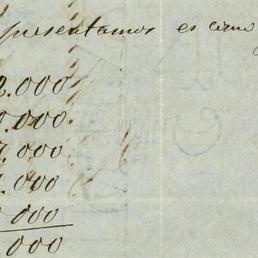 presentamos es como
2.000
0.000
7.000
1.000
000
000